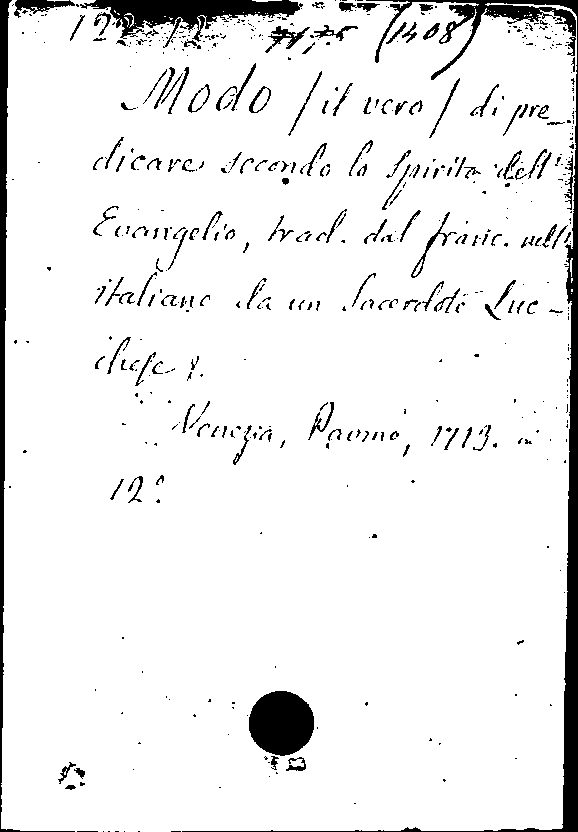 122 12 7175 (1408)
Modo / il vero / di pre_
dicare secondo lo Spirito dell'
Evangelio, trad. dal franc. nell'
italiano da un Sacerdote Luc-
chese &.
Venezia, Pavino, 1713. in
12º